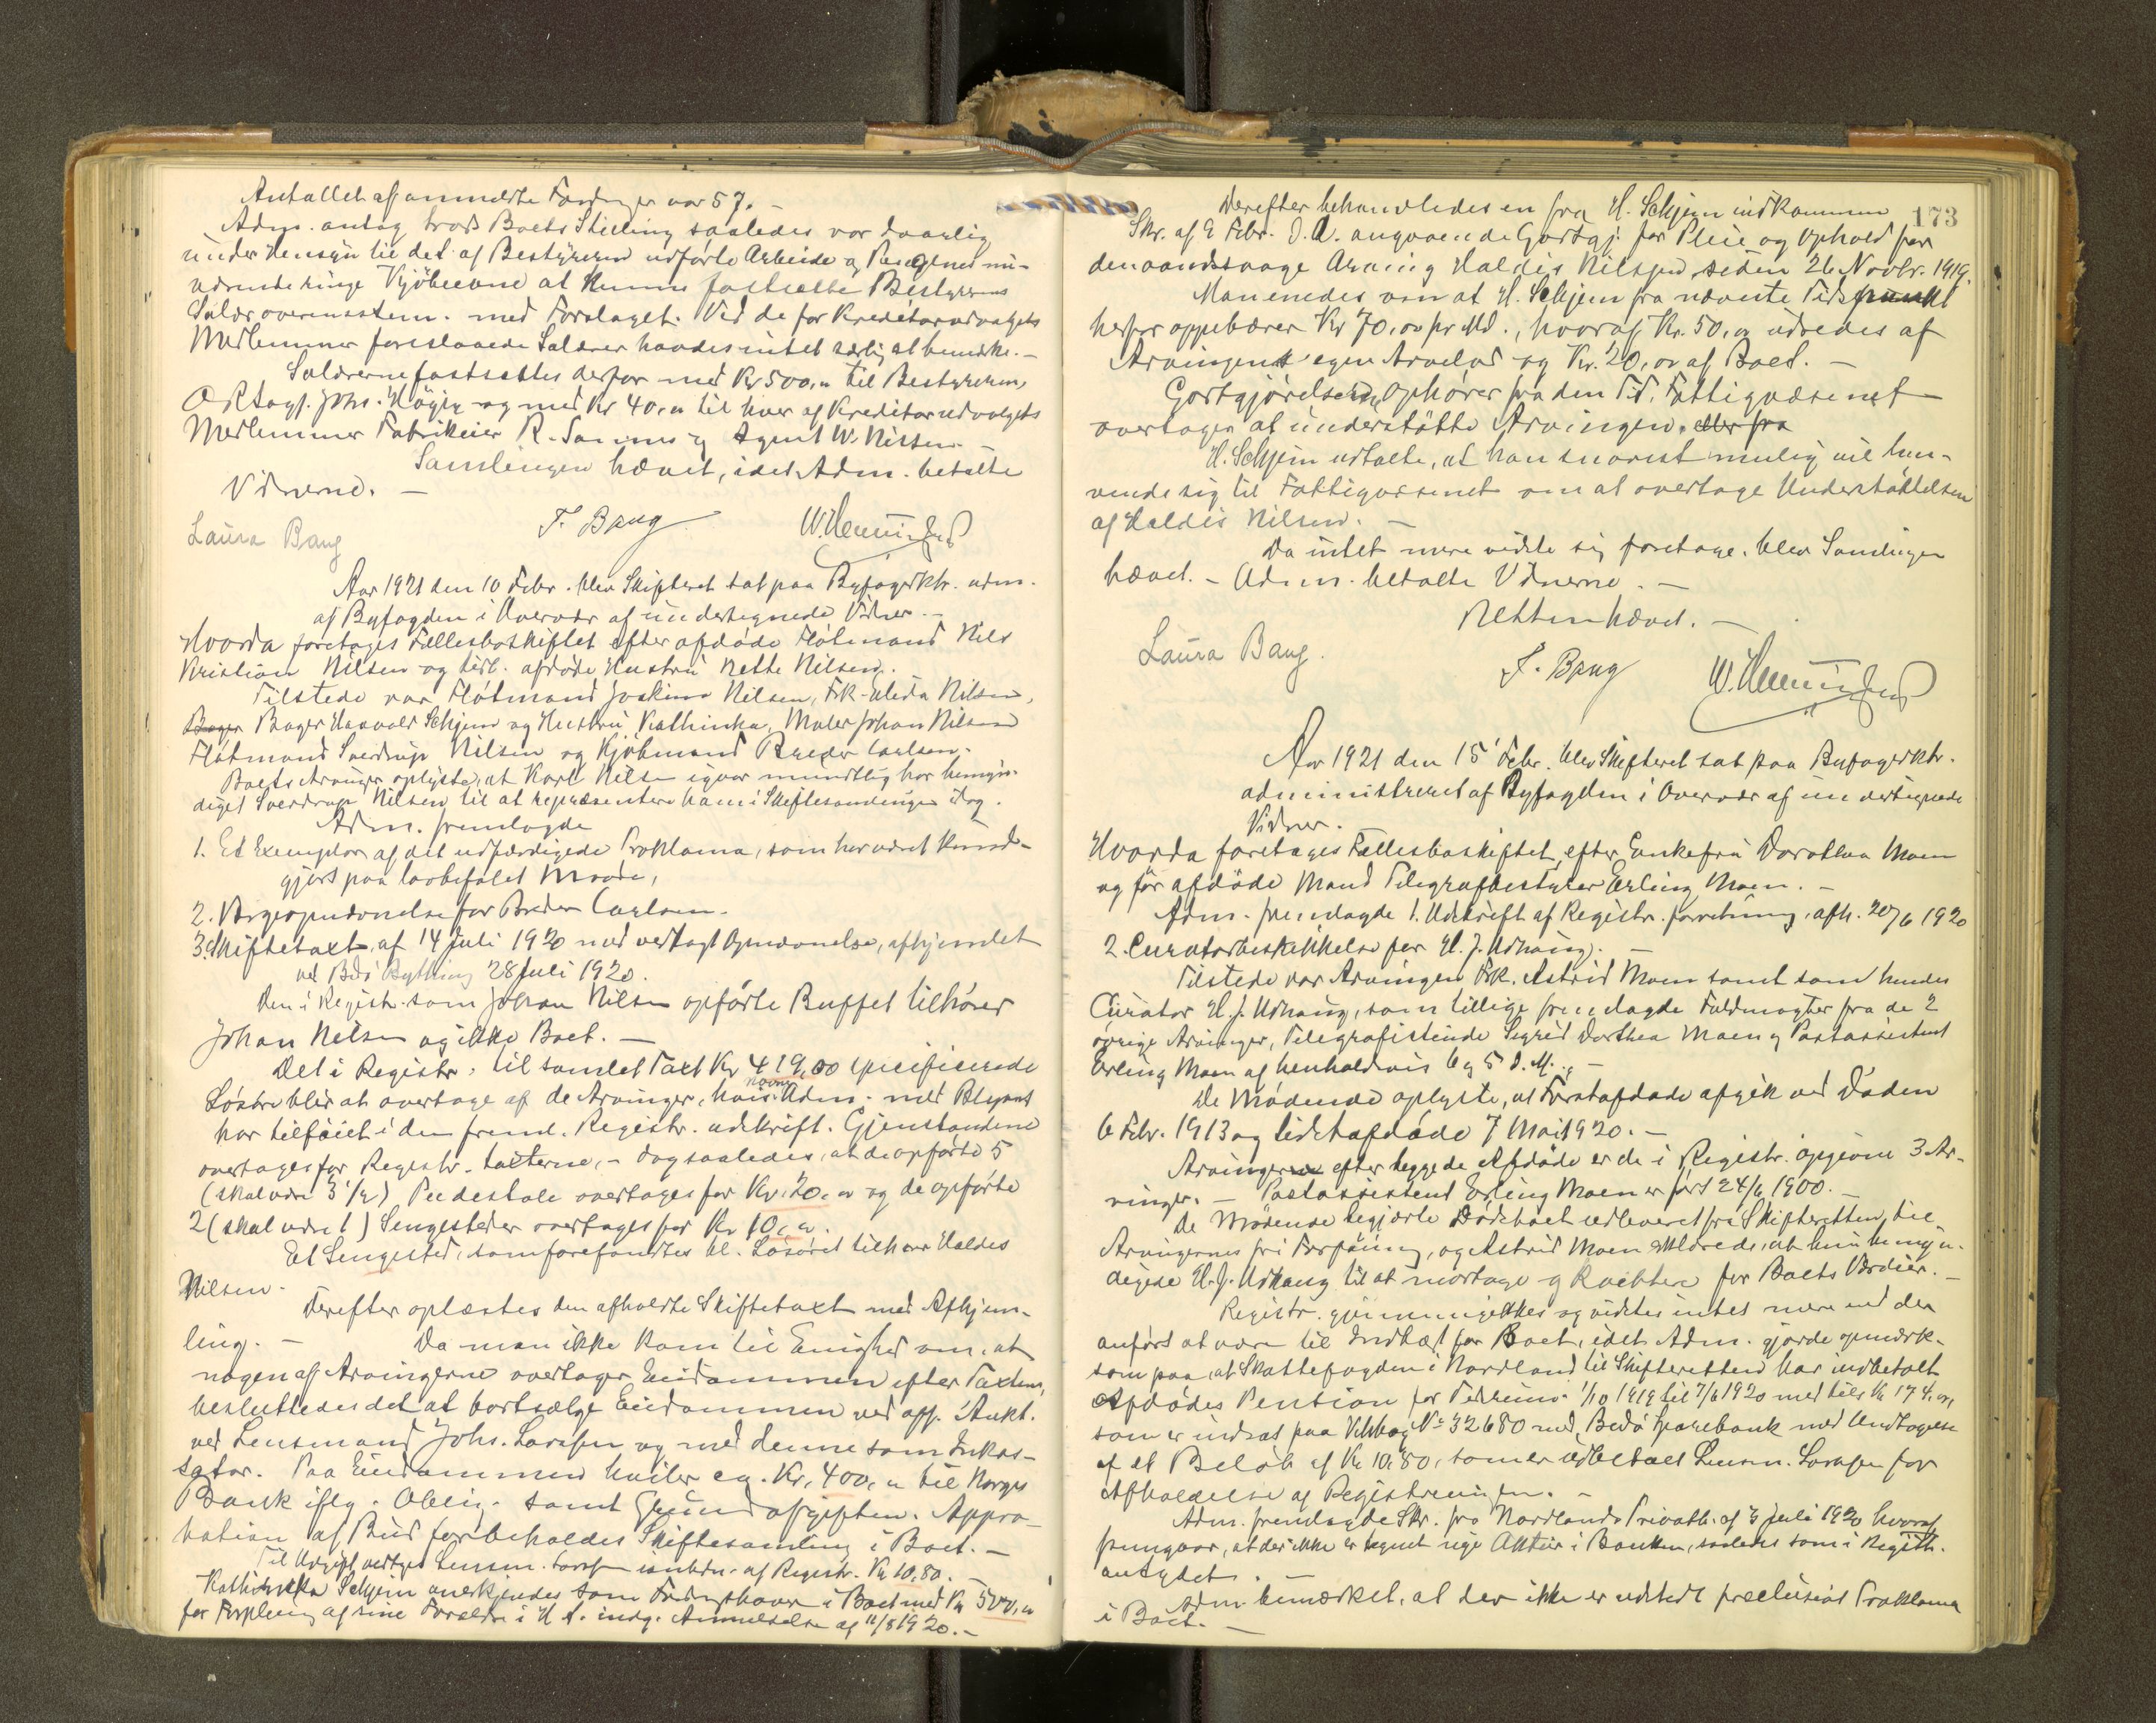 Antallet af anmeldte Fordringer var 57. –
Adm. antog trods Boets Stilling saaledes var daarlig
under Hensyn til det af Bestyreren udførte Arbeide og Pengenes nu-
værende ringe Kjøbeevne at kunne fastsætte Bestyrerens
Salær overensstem. med Forslaget. Ved de for Kreditorudvalgets
Medlemmer foreslaaede Salærer havdes intet særlig at bemærke. –
Salærerne fastsattes derfor med Kr 500,00 til Bestyreren,
O.R.Sagf. Johs. Høgig og med Kr 40,00 til hver af Kreditorudvalgets
Medlemmer Fabrikeier R. og Agent W. Nissen. –
Samlingen hævet, idet Adm. betalte
Vidnerne. –
Laura Bang F. Bang W. Henningsen
Aar 1921 den 10 Febr. blev Skifteret sat paa Byfogedktr. adm.
af Byfogden i Overvær af undertegnede Vidner. –
Hvorda foretages Fællesboskiftet efter afdøde Fløtmand Nils
Kristian Nilsen og tidl. afdøde Hustru Nette Nilsen.
Tilstede var Fløtmand Joakim Nilsen, Frk. Alida Nilsen,
Bager Bager Haavald Schjem og Hustru Kathinka, Maler Johan Nilsen
Fløtmand Sverdrup Nilsen og Kjøbmand Breder Carlsen.
Boets Arvinger oplyste, at Karl Nilsen igaar mundtlig har bemyn-
diget Sverdrup Nilsen til at repræsentere ham i Skiftesamlingen idag.
Adm. fremlagde
1. Et Exemplar af det udfærdigede Proklama, som har været kund-
gjort paa lovbefalet Maade,
2. Værgeopnævnelse for Breder Carlsen.
3. Skiftetaxt af 14 Juli 1920 med vedtagt Opnævnelse, afhjemlet
ved Bodø Bything 28 Juli 1920.
Den i Registr. som Johan Nilsen opførte Buffet tilhører
Johan Nilsen og ikke Boet. –
Det i Registr. til samlet Taxt Kr 419,00 specificerede
Løsøre blir at overtage af de Arvinger, hvis Navne Adm. med Blyant
har tilføiet i den freml. Registr. udskrift. Gjenstandene
overtages for Registr. taxterne, – dog saaledes, at de opførte 5
(skal være 3 1/2) Pedestale overtages for Kr. 20,00 og de opførte
2 (skal være 1) Sengesteder overtages for Kr 10,00.
Et Sengested, som forefandtes bl. Løsøret tilhører Haldis
Nilsen.
Derefter oplæstes den afholdte Skiftetaxt med Afhjem-
ling. – Da man ikke kom til Enighed om, at
nogen af Arvingerne overtager Eiendommen efter Taxten,
besluttedes det at bortsælge Eiendommen ved off. Aukt.
ved Lensmand Johs. Larssen og med denne som Inkas-
sator. Paa Eiendommen hviler ca. Kr. 400,00 til Norges
Bank iflg. Oblig. samt Grundafgiften. Appro-
bation af Bud forbeholdes Skiftesamling i Boet. –
Til Udgift vedtoges Lensm. Larssen af Registr. Kr 10,80. –
Kathinka Schjem anerkjendes som Fordringshaver i Boet med Kr 500,00
for Forpleining af sine Forældre i H. t. indg. Anmeldelse af 11/8 1920. –
173
Derefter behandledes en fra H. Schjem indkommen
Skr. af 9 Febr. d. A. angaaende Godtgj. for Pleie og Ophold for
den aandssvage Arving Haldis Nilsen, siden 26 Novbr. 1919.
Man enedes om at H. Schjem fra nævnte Tidspunkt
herfor oppebærer Kr 70,00 pr Md., hvoraf Kr. 50,00 udredes af
Arvingens egen Arvelod og Kr. 20,00 af Boet. –
Godtgjørelsen ophører fra den Tid, Fattigvæsenet
overtager at understøtte Arvingen. eller fra
H. Schjem udtalte, at han snarest mulig vil hen-
vende sig til Fattigvæsenet om at overtage Understøttelsen
af Haldis Nilsen. –
Da intet mere vidste sig foretage, blev Samlingen
hævet. – Adm. betalte Vidnerne. –
Retten hævet. –
Laura Bang. F. Bang W. Henningsen
Aar 1921 den 15' Febr. blev Skifteret sat paa Byfogedktr.
administreret af Byfogden i Overvær af undertegnede
Vidner.
Hvorda foretages Fællesboskiftet efter Enkefru Dorothea Moen
og før afdøde Mand Telegrafbestyrer Erling Moen. –
Adm. fremlagde 1. Udskrift af Registr. forretning, afh. 20/6 1920
2. Curatorbeskikkelse for H. J. Udhaug. –
Tilstede var Arvingen Frk. Astrid Moen samt som hendes
Curator H. J. Udhaug, som tillige fremlagde Fuldmagter fra de 2
øvrige Arvinger, Telegrafistinde Sigrid Dorthea Moen og Postassistent
Erling Moen af henholdsvis 6 og 5 d. M. –
De Mødende oplyste, at Førstafdøde afgik ved Døden
6 Febr. 1913 og sidstafdøde 7 Mai 1920. –
Arvingerne efter begge de Afdøde er de i Registr. opgivne 3 Ar-
vinger. – Postassistent Erling Moen er født 24/6 1900. –
De Mødende begjærte Dødsboet udleveret fra Skifteretten til
Arvingernes fri Forføining, og Astrid Moen erklærede, at hun bemyn-
digede H. J. Udhaug til at modtage og kvittere for Boets Værdier. –
Registr. gjennemgikkes og vidstes intet mere end der
anført at være til Indtægt for Boet, idet Adm. gjorde opmærk-
som paa, at Skattefogden i Nordland til Skifteretten har indbetalt
Afdødes Pention for Tidsrum 1/10 1919 til 7/6 1920 med tils. Kr 174,00,
som er indsat paa Vilkbog No 32680 med Bodø Sparebank med Undtagelse
af et Beløb af Kr 10,80, som er udbetalt Lensm. Larssen for
Afholdelse af Registreringen. –
Adm. fremlagde Skr. fra Nordlands Privatb. af 3 Juli 1920 hvoraf
fremgaar, at der ikke er tegnet nye Aktier i Banken, saaledes som i Registr.
antydet. –
Adm. bemærket, at der ikke er udstedt præclusivt Proklama
i Boet. –